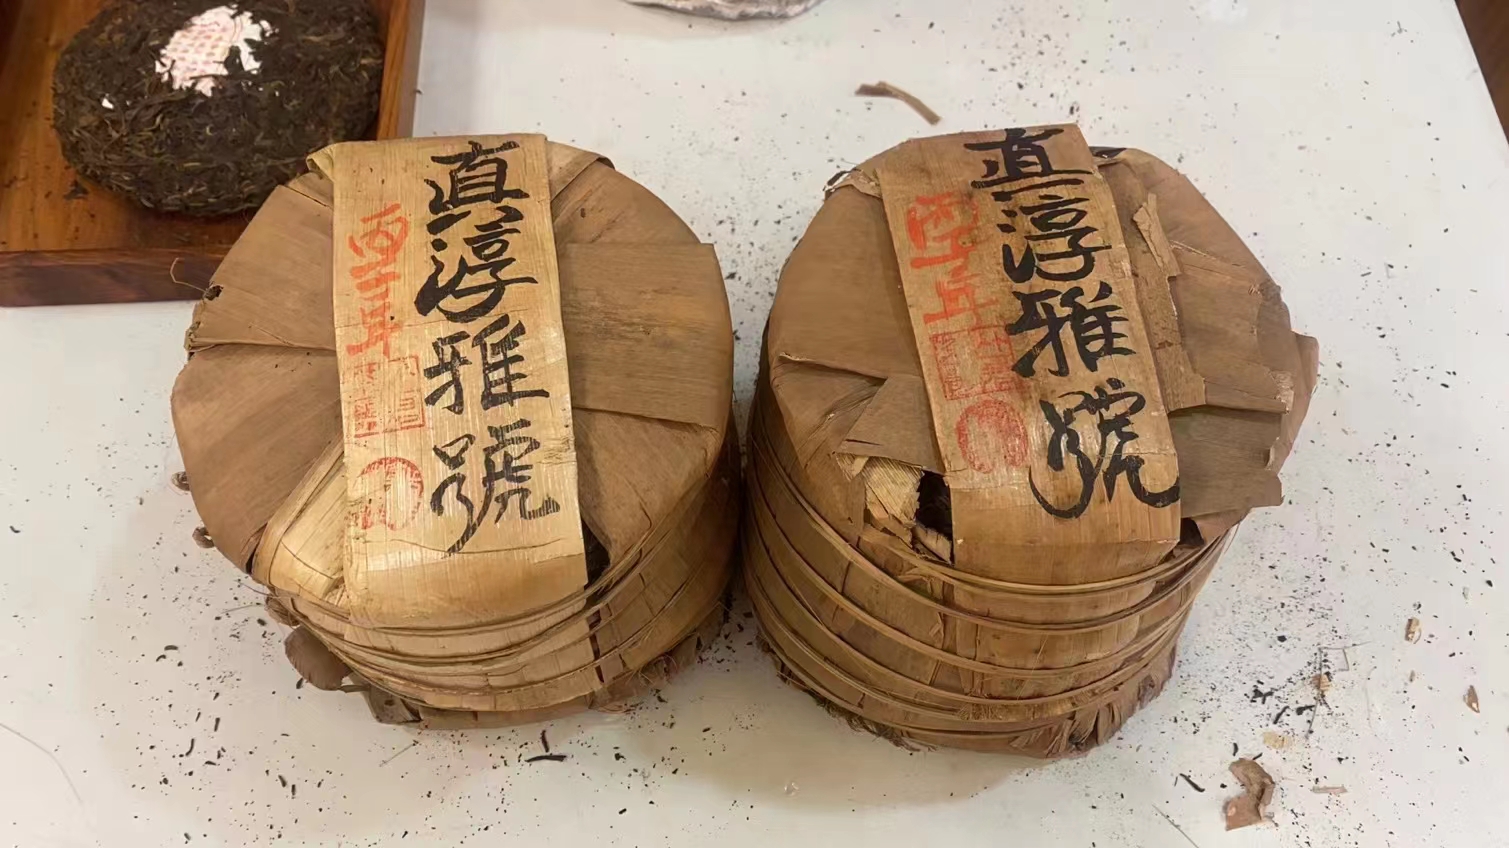 真淳雅號
丙子年
真淳雅號
丙子年